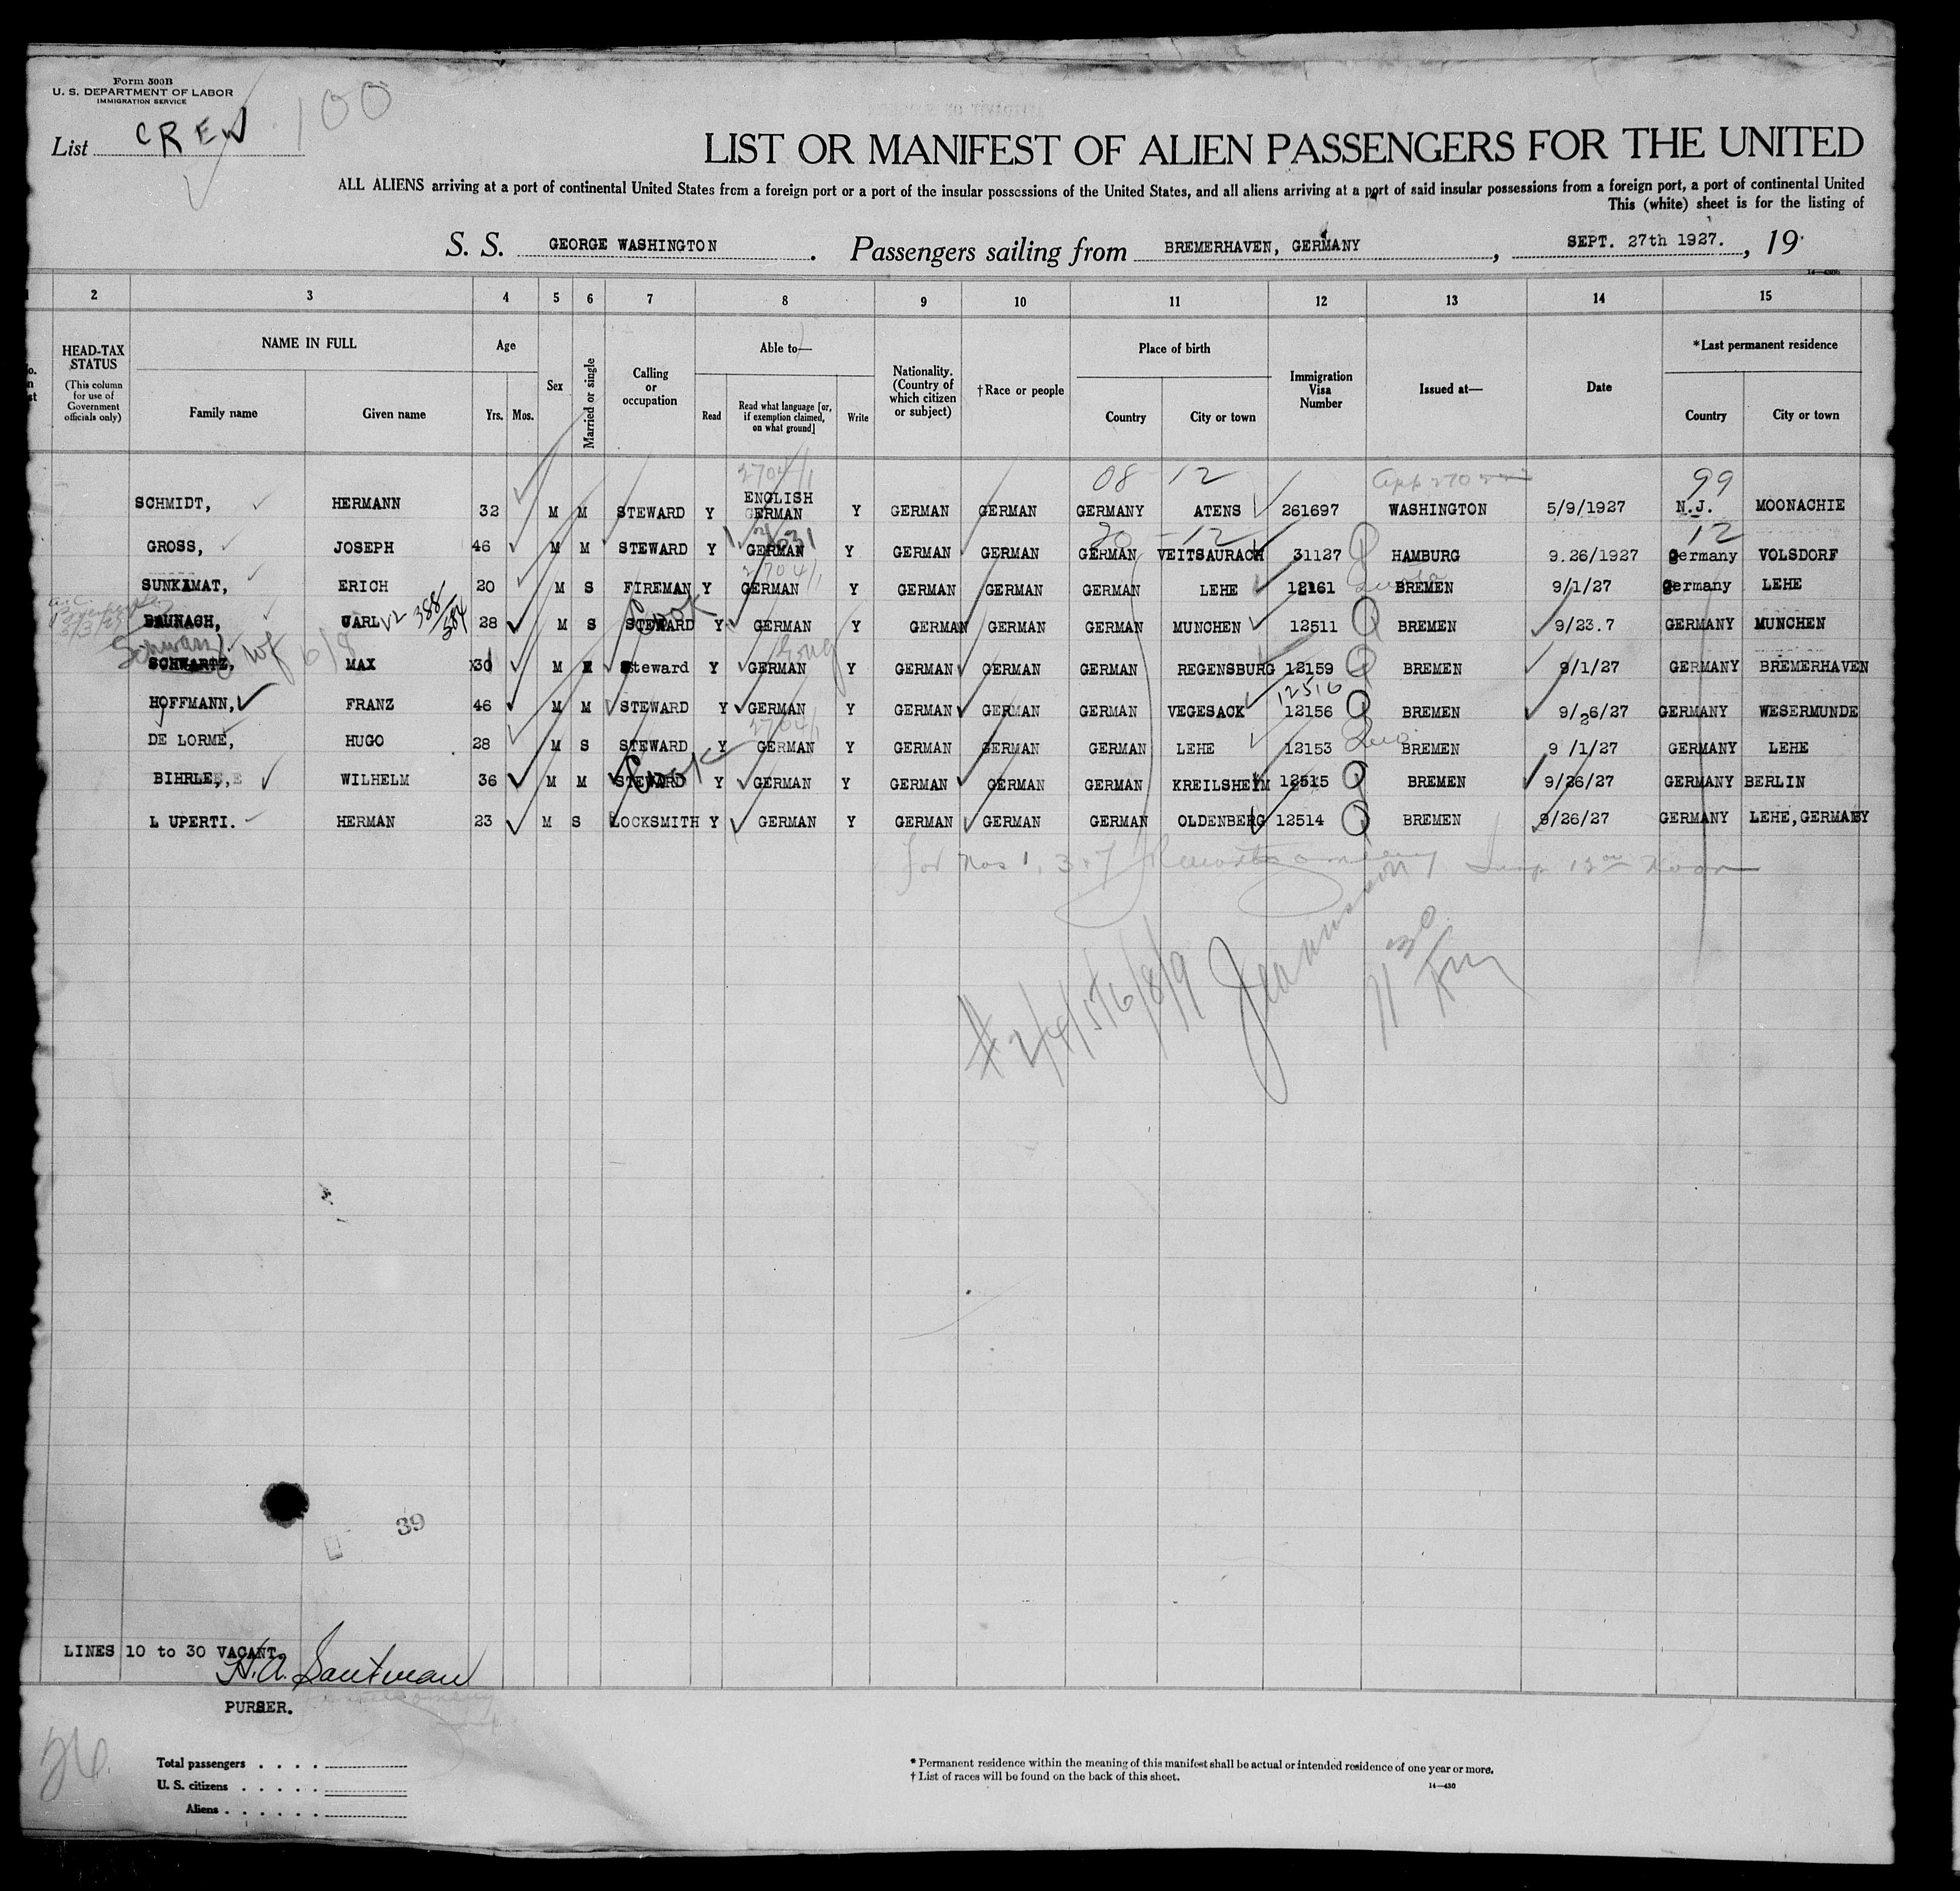 Form 500B
U. S. DEPARTMENT OF LABOR
IMMIGRATION SERVICE
100
List CREW
LIST OR MANIFEST OF ALIEN PASSENGERS FOR THE UNITED
ALL ALIENS arriving at a port of continental United States from a foreign port or a port of the insular possessions of the United States, and all aliens arriving at a port of said insular possessions from a foreign port, a port of continental United
This (white) sheet is for the listing of
S. S. GEORGE WASHINGTON . Passengers sailing from BREMERHAVEN, GERMANY , SEPT. 27th 1927. , 19
2 3 4 5 6 7 8 9 10 11 12 13 14 15
HEAD-TAX STATUS (This column for use of Government officials only) NAME IN FULL Family name Given name Age Yrs. Mos. Sex Married or single Calling or occupation Able to— Read Read what language [or, if exemption claimed, on what ground] Write Nationality. (Country of which citizen or subject) †Race or people Place of birth Country City or town Immigration Visa Number Issued at— Date *Last permanent residence Country City or town
2704/1 08 - 12 99
SCHMIDT, HERMANN 32 M M STEWARD Y ENGLISH GERMAN Y GERMAN GERMAN GERMANY ATENS 261697 WASHINGTON 5/9/1927 N.J. MOONACHIE
20 - 12 12
GROSS, JOSEPH 46 M M STEWARD Y GERMAN Y GERMAN GERMAN GERMAN VEITSAURACH 31127 HAMBURG 9.26/1927 germany VOLSDORF
2704/1
SUNKAMAT, ERICH 20 M S FIREMAN Y GERMAN Y GERMAN GERMAN GERMAN LEHE 12161 BREMEN 9/1/27 germany LEHE
BAUNACH, CARL V2 388/584 28 M S STEWARD Cook Y GERMAN Y GERMAN GERMAN GERMAN MUNCHEN 12511 BREMEN 9/23.7 GERMANY MUNCHEN
Schwarz wf 6/8
SCHWARTZ, MAX 30 M steward Y GERMAN Y GERMAN GERMAN GERMAN REGENSBURG 12159 BREMEN 9/1/27 GERMANY BREMERHAVEN
12516
HOFFMANN, FRANZ 46 M M STEWARD Y GERMAN Y GERMAN GERMAN GERMAN VEGESACK 12156 BREMEN 9/26/27 GERMANY WESERMUNDE
2704/1
DE LORME, HUGO 28 M S STEWARD Y GERMAN Y GERMAN GERMAN GERMAN LEHE 12153 BREMEN 9 /1/27 GERMANY LEHE
BIHRLE, WILHELM 36 M M STEWARD Cook Y GERMAN Y GERMAN GERMAN GERMAN KREILSHEIM 12515 BREMEN 9/26/27 GERMANY BERLIN
L UPERTI. HERMAN 23 M S LOCKSMITH Y GERMAN Y GERMAN GERMAN GERMAN OLDENBERG 12514 BREMEN 9/26/27 GERMANY LEHE, GERMANY
for Nos 1, 3 & 7 Insp 12 Noon
# 2/4/5/6/8/9
39
LINES 10 to 30 VACANT.
PURSER.
26
Total passengers . . . .
U. S. citizens . . . . .
Aliens . . . . . .
* Permanent residence within the meaning of this manifest shall be actual or intended residence of one year or more.
† List of races will be found on the back of this sheet.
14—430